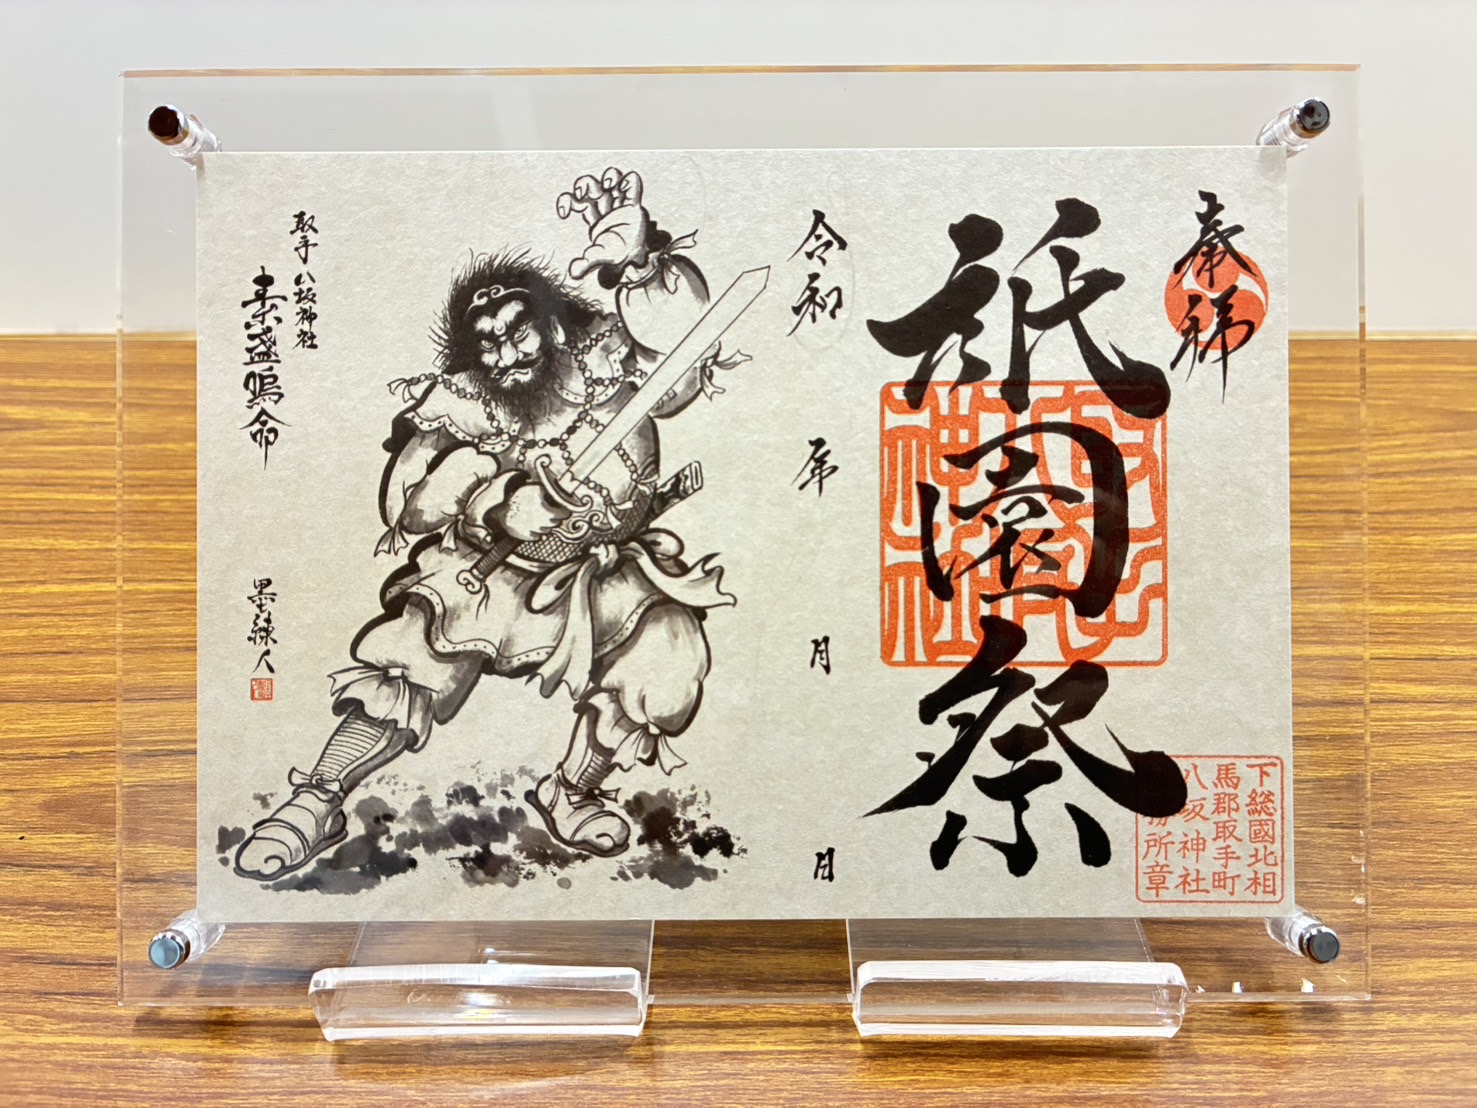 奉祥
祇園祭
下総國北相
馬郡取手町
八坂神社
務所章
令和 年 月 日
取手 八坂神社
素盞嗚命
墨練人